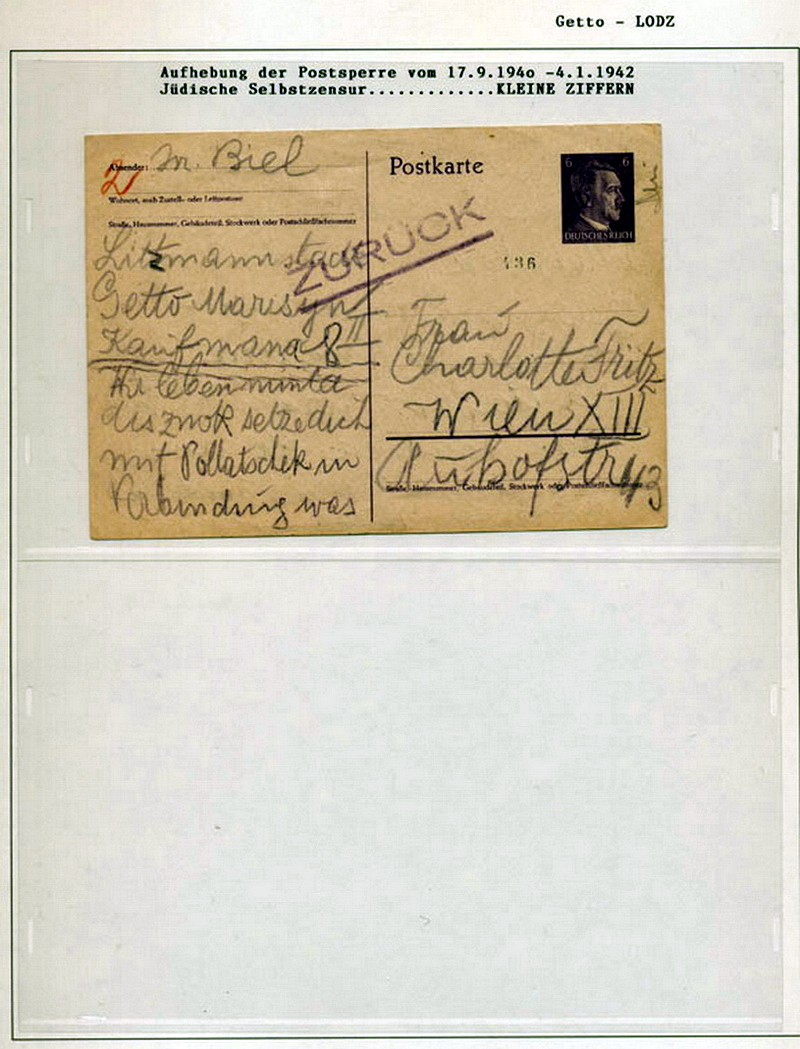 Getto - LODZ
Aufhebung der Postsperre vom 17.9.194o -4.1.1942
Jüdische Selbstzensur.............KLEINE ZIFFERN
Absender: M. Biel
2
Wohnort, auch Zustell- oder Leitpostamt
Straße, Hausnummer, Gebäudeteil, Stockwerk oder Postschließfachnummer
Litzmannstadt
Getto Marisyn II
Kaufmana 8
Ihr Lieben
setze dich
mit Pollatschek in
Verbindung was
Postkarte
6 6
DEUTSCHES REICH
ZURÜCK
136
Frau
Charlotte Fritz
Wien XIII
Auhofstr
Straße, Hausnummer, Gebäudeteil, Stockwerk oder Postschließfachnummer